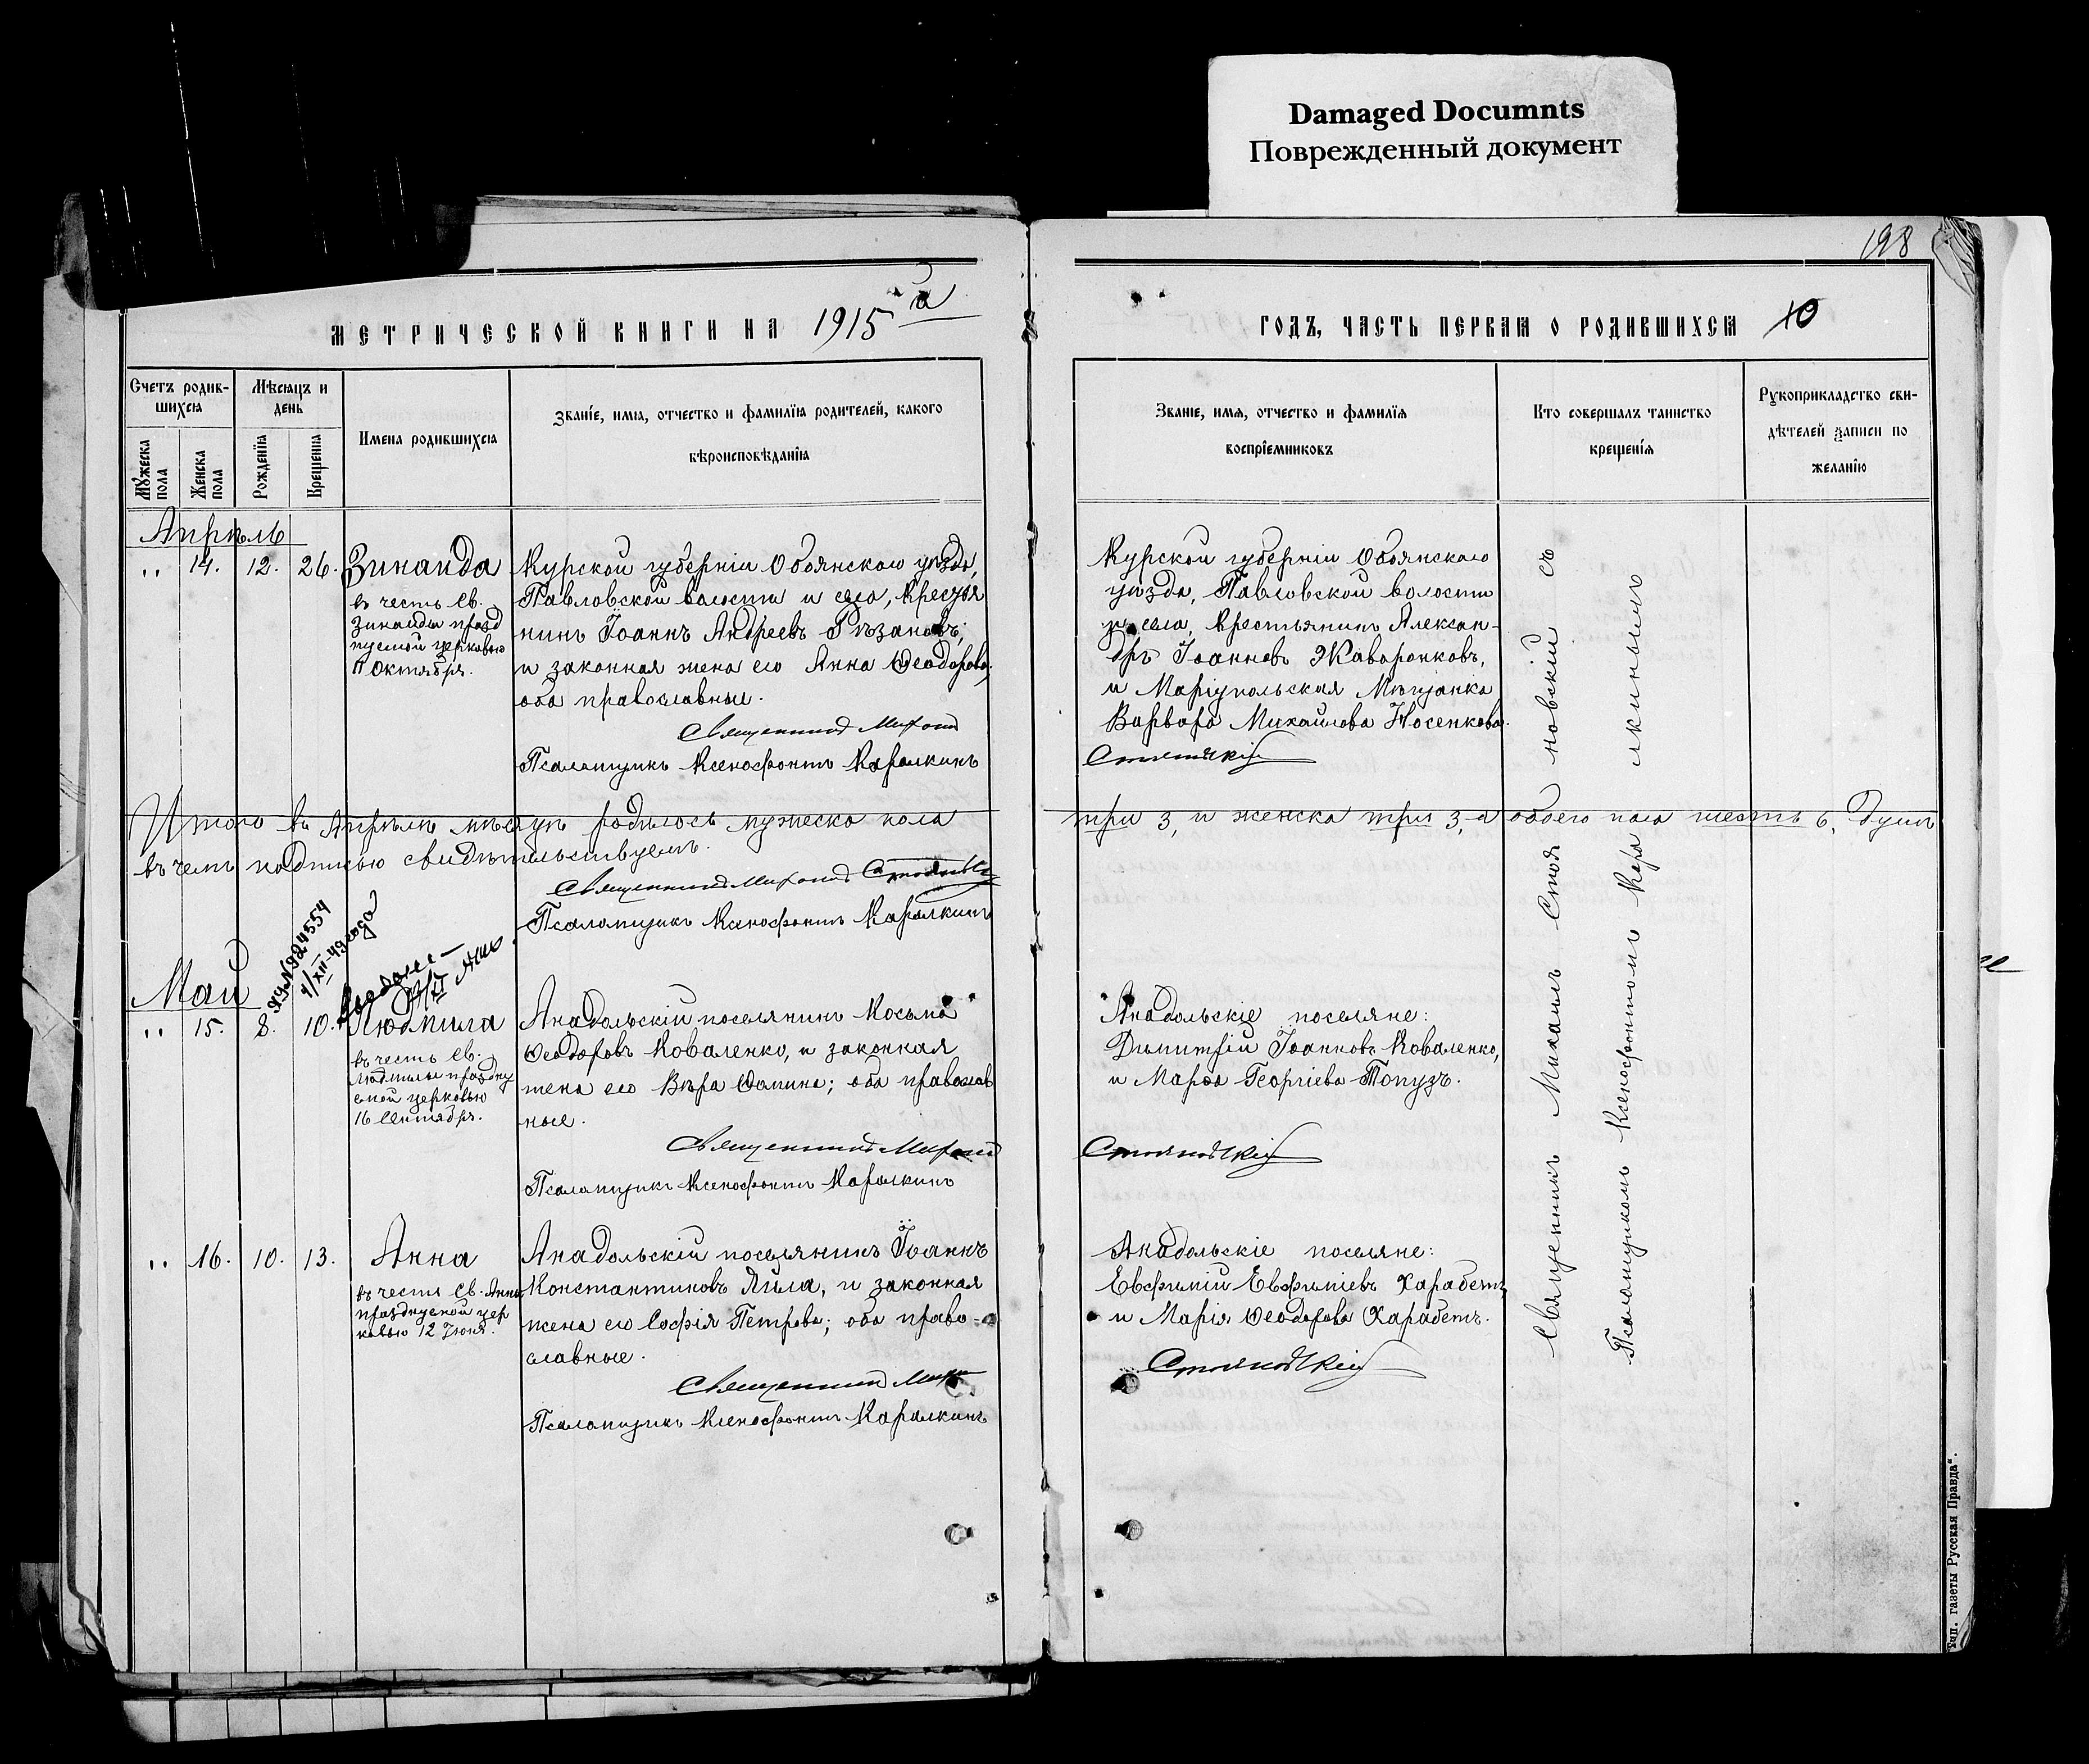 Damaged Documnts
Поврежденный документ
198
МЕТРИЧЕСКОЙ КНИГИ НА 1915 ГОДЪ, ЧАСТЬ ПЕРВАЯ О РОДИВШИХСЯ 10
Счетъ родив-
шихся
Мѣсяцъ и
день
Мужеска
пола
Женска
пола
Рожденія
Крещенія
Имена родившихся
Званіе, имя, отчество и фамилія родителей, какого
вѣроисповѣданія
Званіе, имя, отчество и фамилія
воспріемниковъ
Кто совершалъ таинство
крещенія
Рукоприкладство сви-
дѣтелей записи по
желанію
Апрѣль
„ 14. 12. 26. Зинаида
въ честь св.
Зинаиды празд
нуемой церковью
11 Октября.
Курской губерніи Обоянскаго уѣзда,
Павловской волости и села, крестья
нинъ Іоаннъ Андреевъ Рѣзановъ,
и законная жена его Анна Ѳеодорова,
оба православные.
Священникъ Михаилъ
Псаломщикъ Ксенофонтъ Каралкинъ
Курской губерніи Обоянскаго
уѣзда, Павловской волости
и села, крестьянинъ Алексан-
дръ Іоанновъ Жаворонковъ,
и Маріупольская Мѣщанка
Варвара Михайлова Носенкова.
Стояновскій
Итого въ Апрѣлѣ мѣсяцѣ родилось мужеска пола три 3, и женска три 3, а обоего пола шесть 6, душъ
въ чемъ подписью свидѣтельствуемъ.
Священникъ Михаилъ Стояновскій
Псаломщикъ Ксенофонтъ Каралкинъ
Май
924554
XII-49 года
„ 15. 8. 10. Людмила
въ честь св.
Людмилы праздну
емой церковью
16 Сентября.
Анадольскій поселянинъ Косьма
Ѳеодоровъ Коваленко, и законная
жена его Вѣра Ѳомина; оба православ
ные.
Священникъ Михаилъ
Псаломщикъ Ксенофонтъ Каралкинъ
Анадольскіе поселяне:
Димитрій Іоанновъ Коваленко,
и Марѳа Георгіева Топузъ.
Стояновскій
„ 16. 10. 13. Анна
въ честь св. Анны
празднуемой цер
ковью 12 Іюня.
Анадольскій поселянинъ Іоаннъ
Константиновъ Пила, и законная
жена его Софія Петрова; оба право-
славные.
Священникъ Мих
Псаломщикъ Ксенофонтъ Каралкинъ
Анадольскіе поселяне:
Евфимій Евфиміевъ Харабетъ
и Марія Ѳеодорова Харабетъ.
Стояновскій
Священникъ Михаилъ Стояновскій съ
Псаломщикомъ Ксенофонтомъ Каралкинымъ
Тип. газеты Русская Правда".